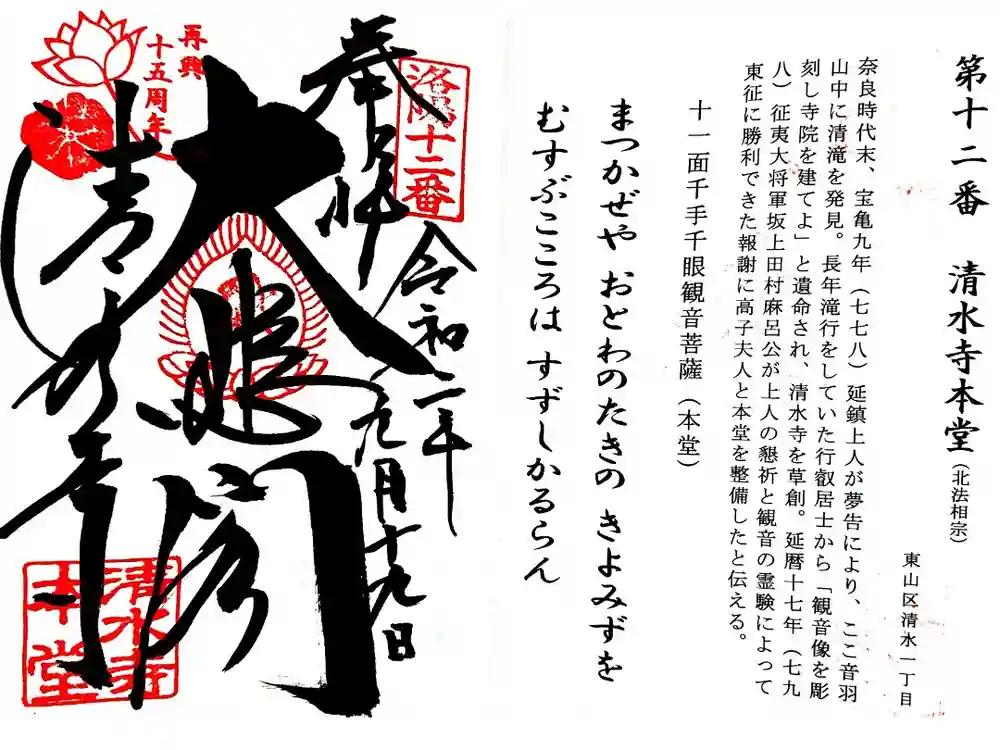 第十二番 清水寺本堂(北法相宗)
東山区清水一丁目
奈良時代末、宝亀九年(七七八)延鎮上人が夢告により、ここ音羽
山中に清滝を発見。長年滝行をしていた行叡居士から「観音像を彫
刻し寺院を建てよ」と遺命され、清水寺を草創。延暦十七年(七九
八)征夷大将軍坂上田村麻呂公が上人の懇祈と観音の霊験によって
東征に勝利できた報謝に高子夫人と本堂を整備したと伝える。
十一面千手千眼観音菩薩(本堂)
まつかぜや おとわのたきの きよみずを
むすぶこころは すずしかるらん
洛陽十二番
奉拝
令和二年
九月十九日
大悲閣
再興
十五周年
清水寺
清水寺
本堂